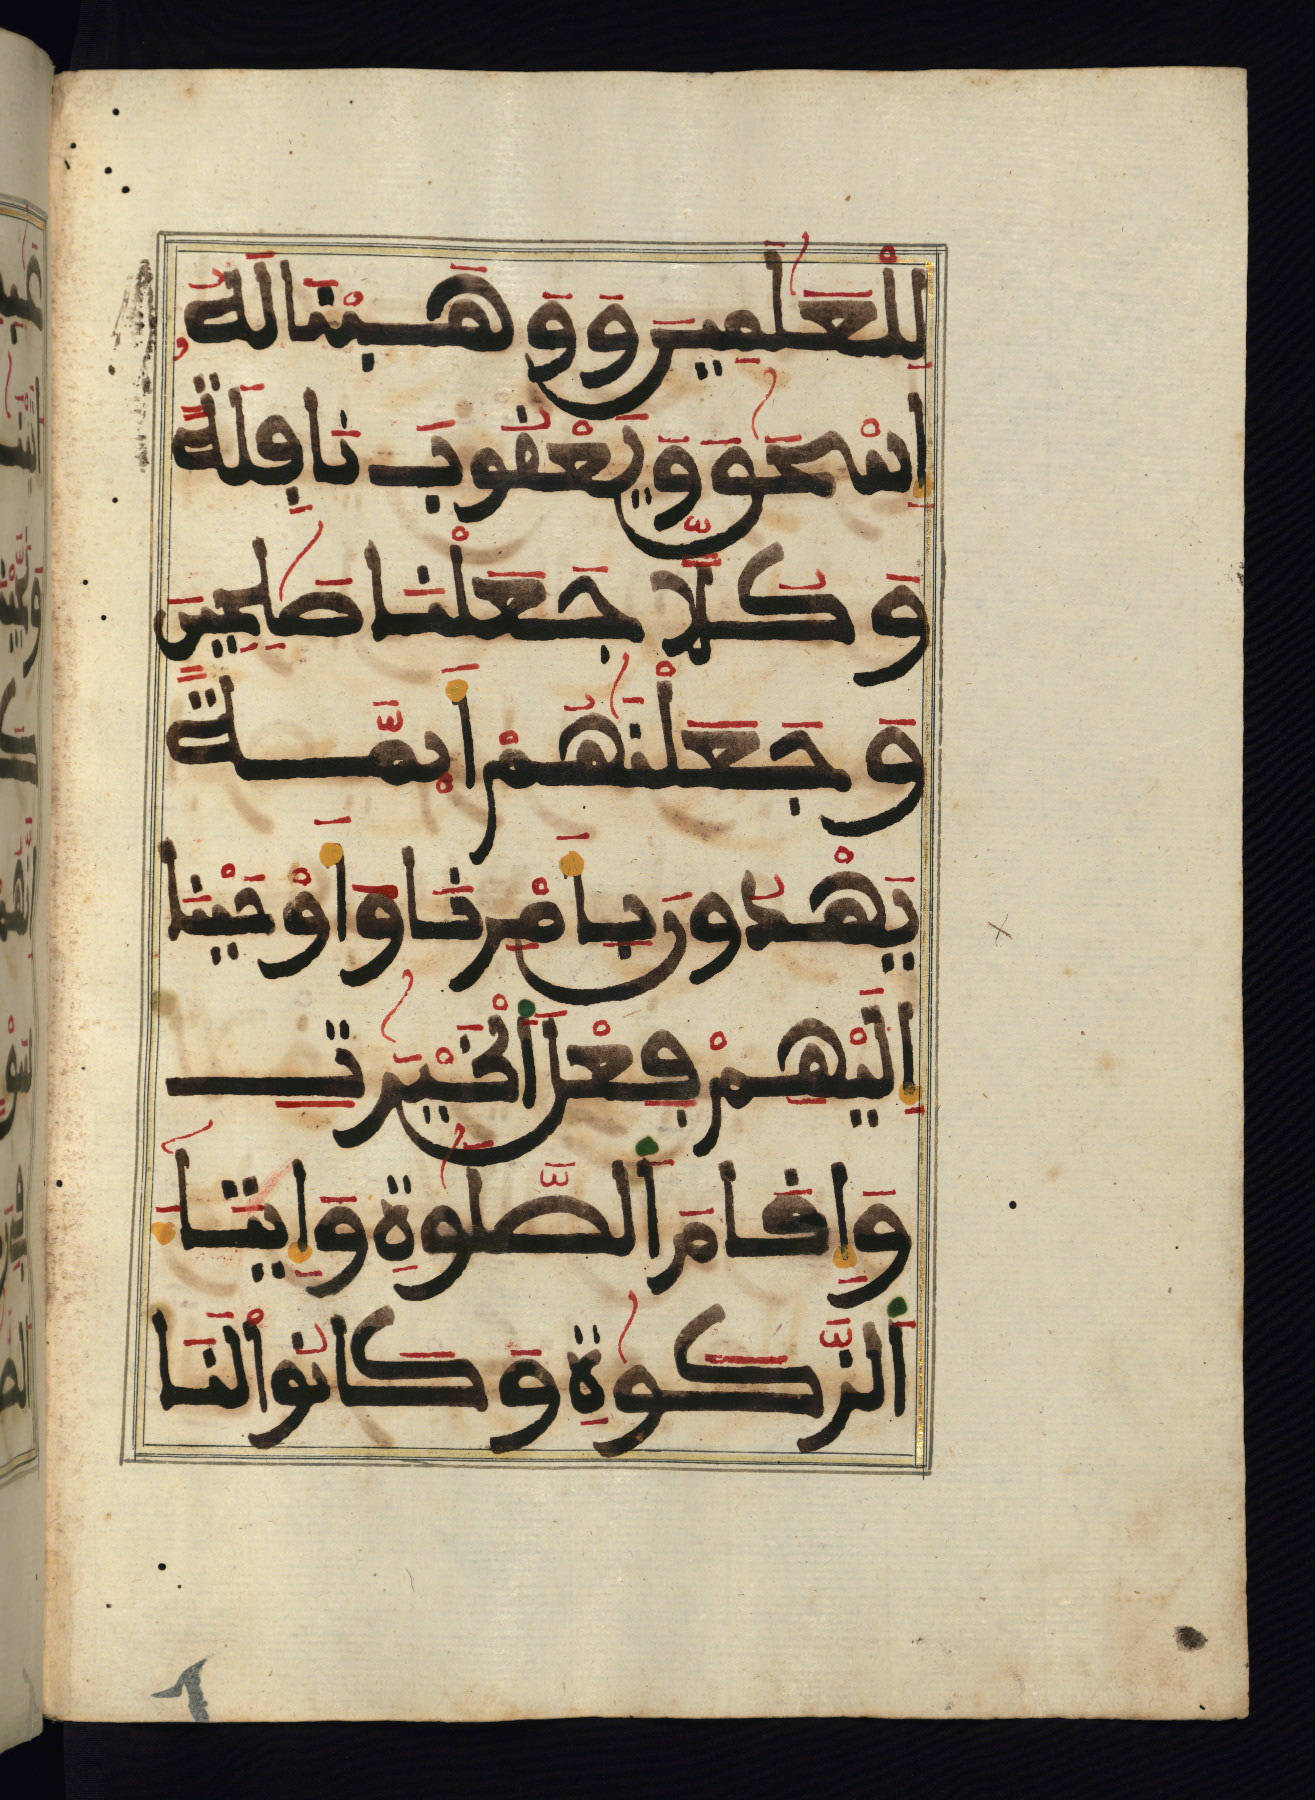 لِلْعَٰلَمِينَ وَوَهَبْنَا لَهُۥ
إِسْحَٰقَ وَيَعْقُوبَ نَافِلَةً
وَكُلّٗا جَعَلْنَا صَٰلِحِينَ
وَجَعَلْنَٰهُمْ أَئِمَّةً
يَهْدُونَ بِأَمْرِنَا وَأَوْحَيْنَا
إِلَيْهِمْ فِعْلَ ٱلْخَيْرَٰتِ
وَإِقَامَ ٱلصَّلَوٰةِ وَإِيتَآءَ
ٱلزَّكَوٰةِ وَكَانُوا۟ لَنَا